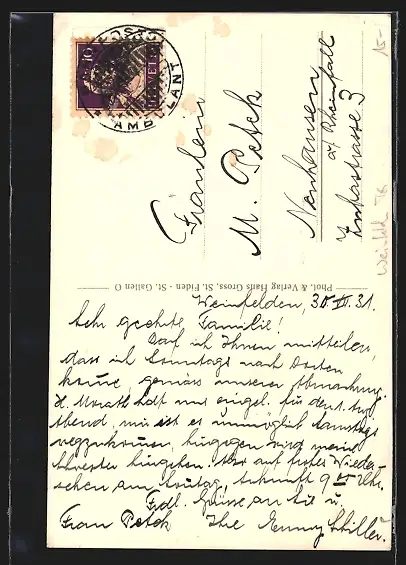 AMBULANT
10
HELVETIA
15-
Fräulein
M. Petek
Neuhausen
a/ Rheinfall
Zentralstrasse 3
Phot. & Verlag Hans Gross, St. Fiden - St. Gallen O
Weinfelden, 30. VII. 31.
Sehr geehrte Familie!
Darf ich Ihnen mitteilen,
dass ich Sonntags nach dorten
komme, gemäss unserer Abmachung.
H. Morath ladt uns eingel. für den 1. Aug.
Abend, mir ist es unmöglich Samstags
wegzukommen, hingegen wird meine
Schwester hingehen. Also auf frohes Wieder-
sehen am Sonntag, Ankunft 9 Uhr.
Frdl. Grüsse an Sie u.
Frau Petek Ihre Emmy Schiller.